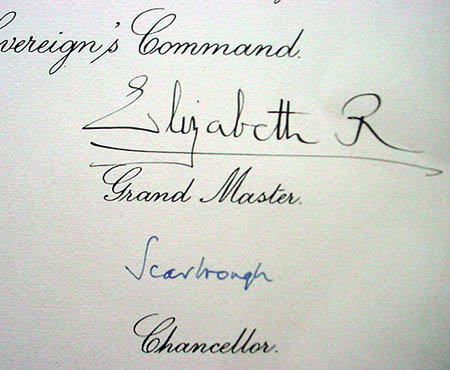 Sovereign's Command.
Elizabeth R
Grand Master.
Scarbrough
Chancellor.